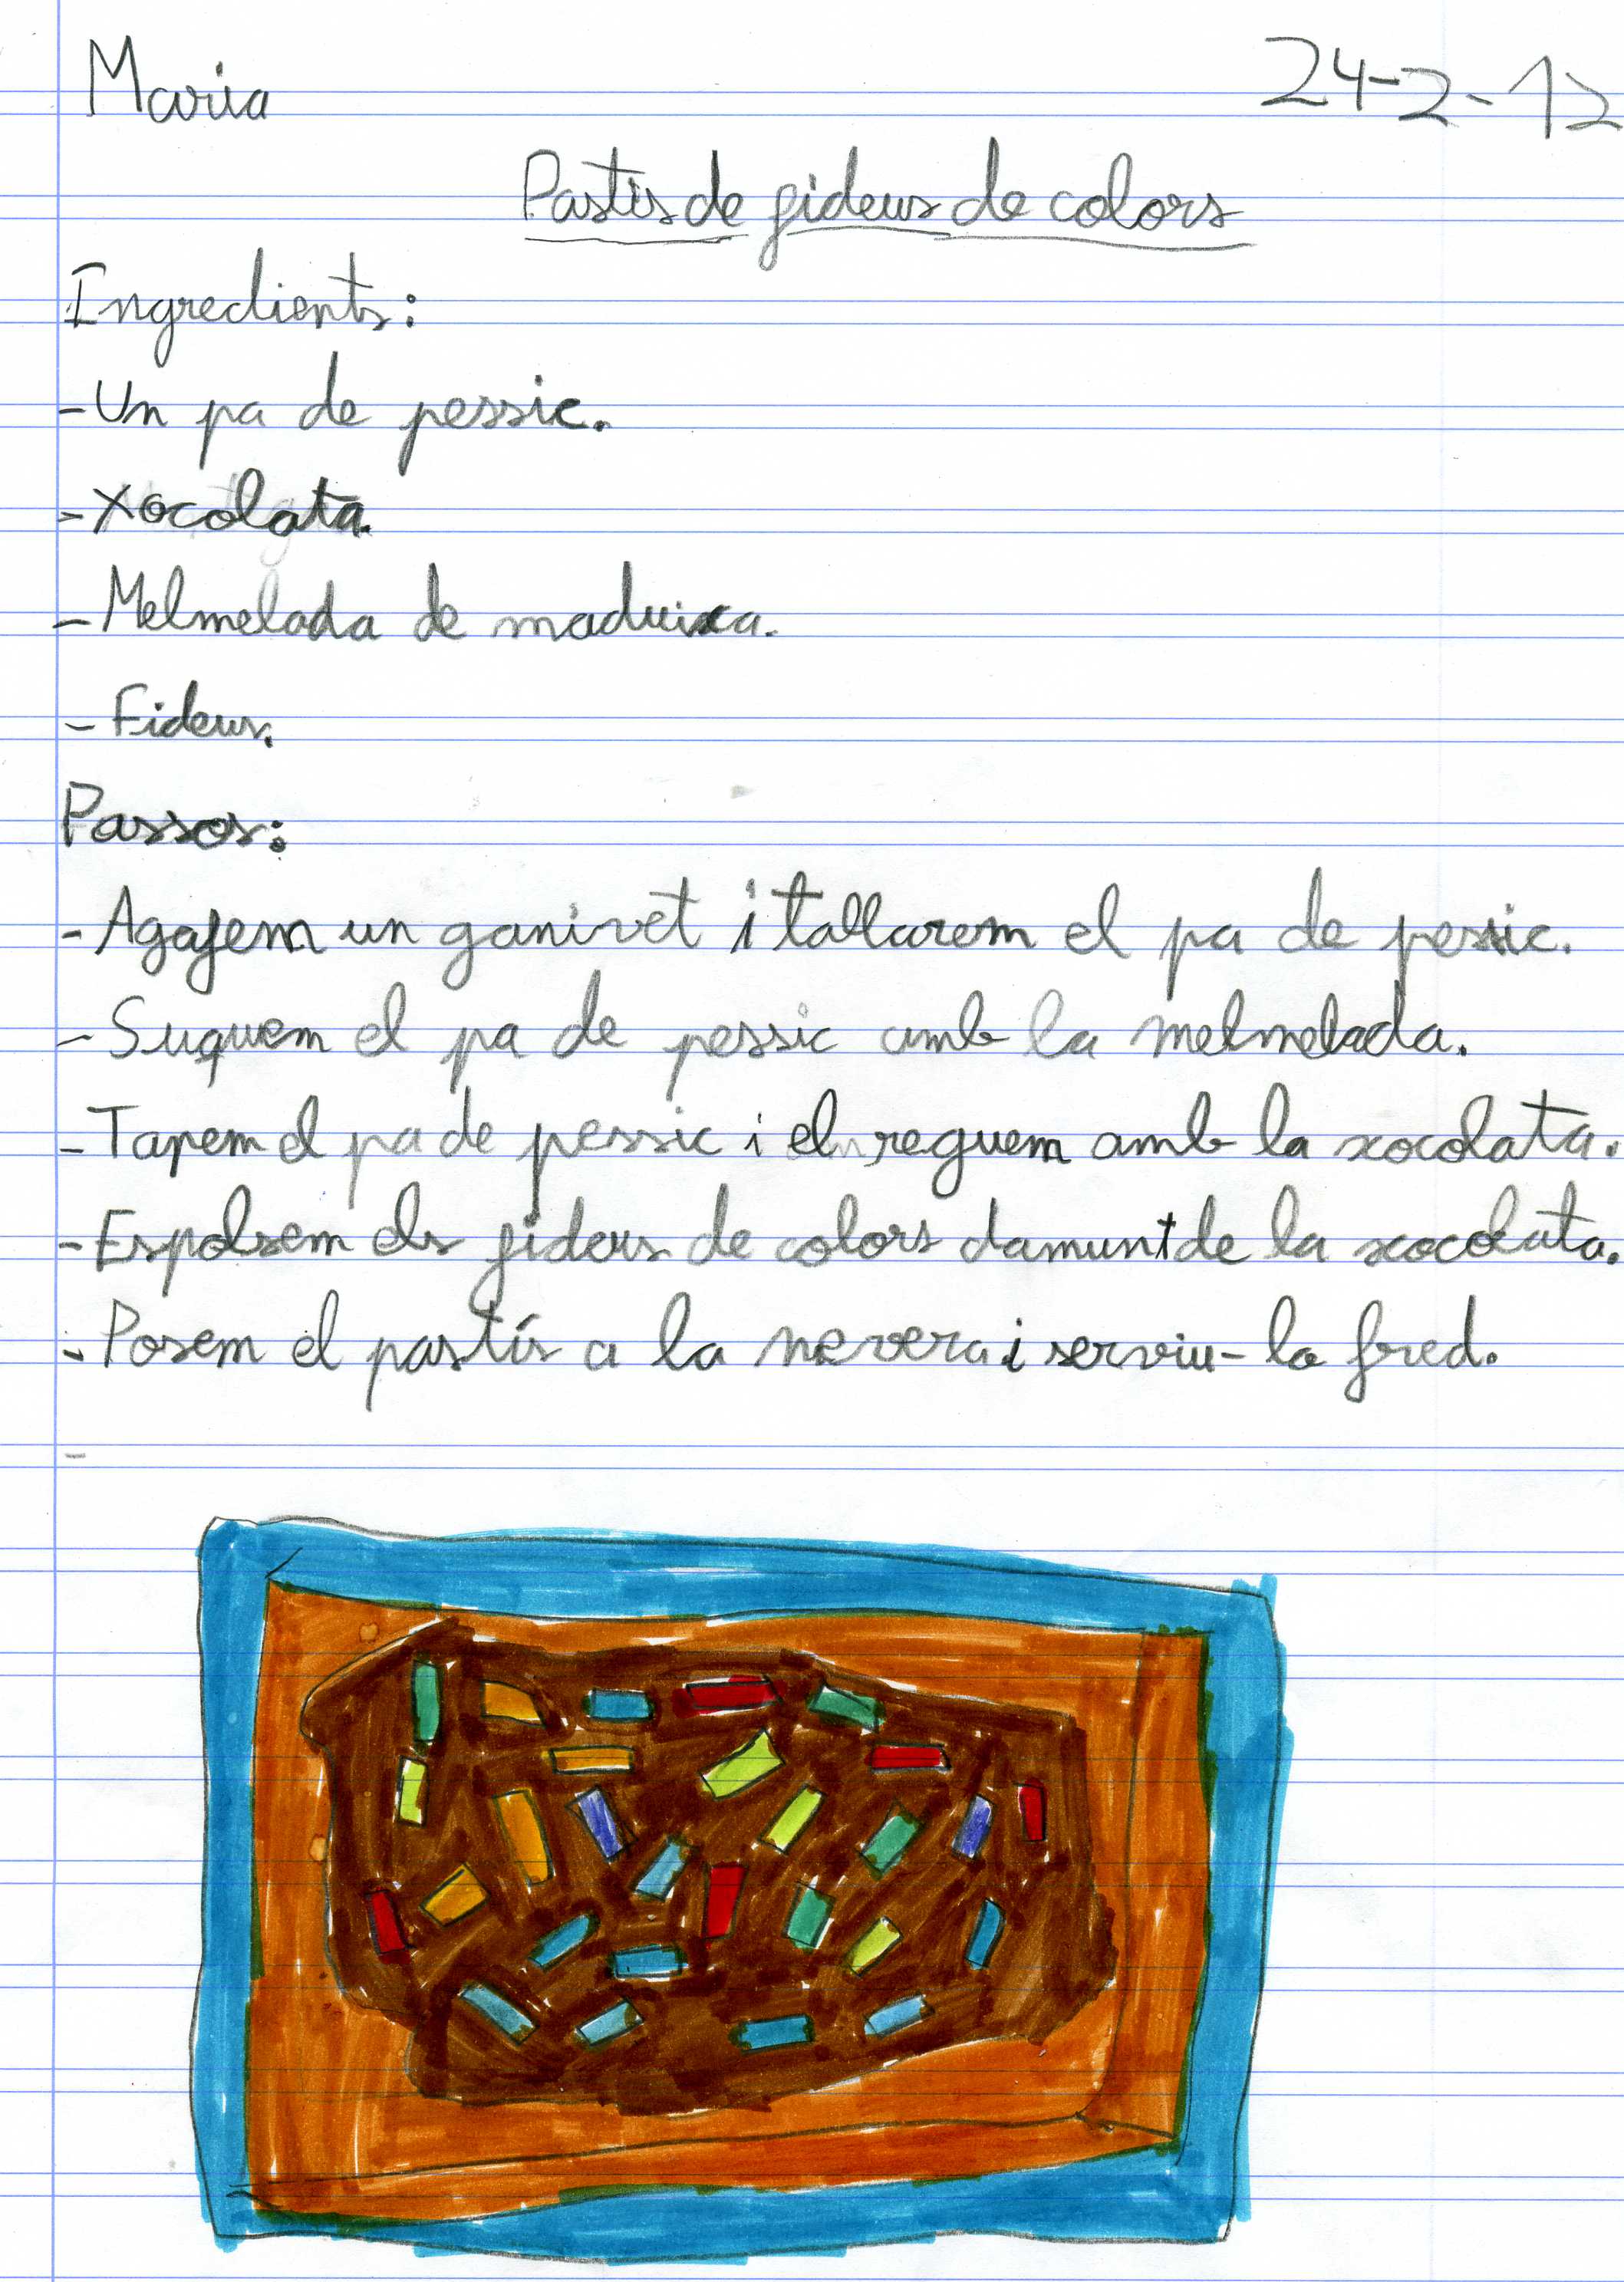 Maria
24-2-12
Pastis de fideus de colors
Ingredients:
-Un pa de pessic.
-Xocolata.
-Melmelada de maduixa.
-Fideus.
Passos:
-Agafem un ganivet i tallarem el pa de pessic.
-Suquem el pa de pessic amb la melmelada.
-Tapem el pa de pessic i el reguem amb la xocolata.
-Espolsem els fideus de colors damunt de la xocolata.
-Posem el pastís a la nevera i serviu-lo fred.
-